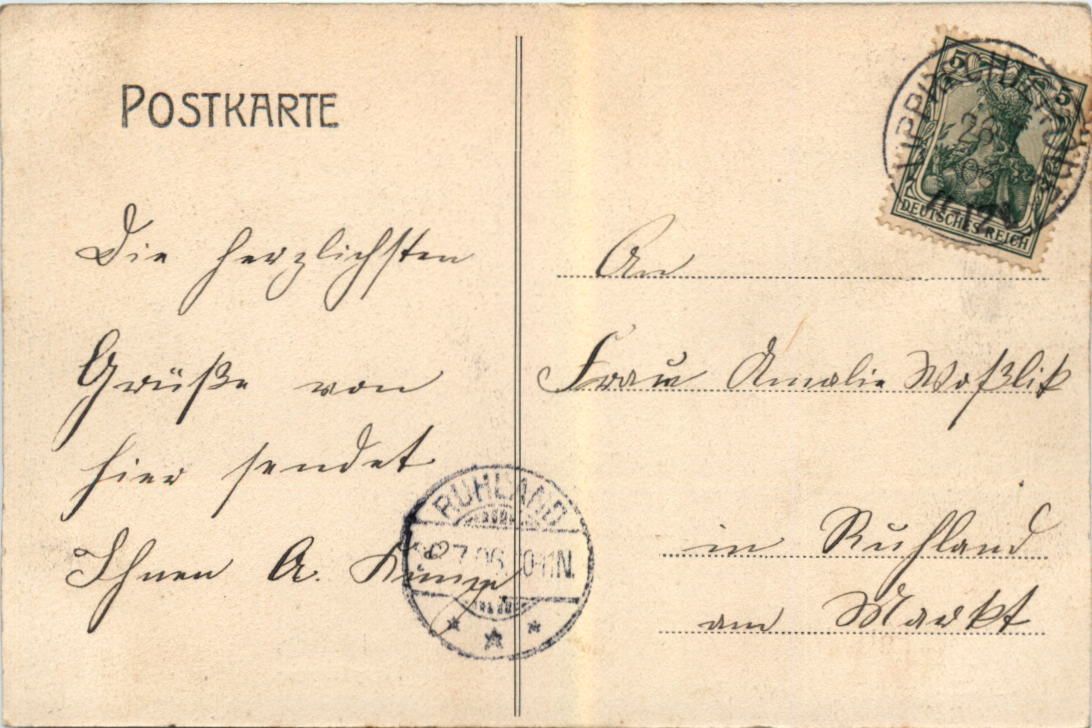 POSTKARTE
Die herzlichsten
Grüße von
hier sendet
Ihnen A. Kunze
An
Frau Amalie Woßlik
in Ruhland
am Markt
5 5
26
DEUTSCHES REICH
RUHLAND
27.7.06. 10-11N.